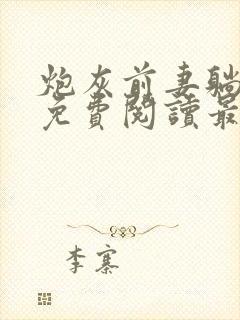 炮灰前妻躺
免費閱讀最
李寨